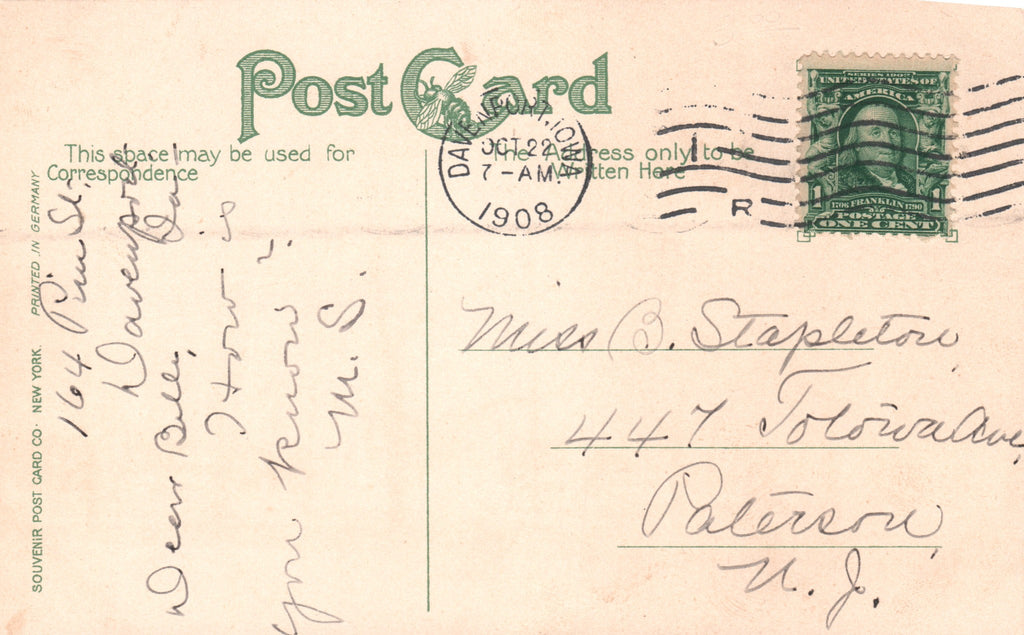 Post Card
This space may be used for
Correspondence
The Address only to be
Written Here
DAVENPORT, IOWA
OCT 22
7-AM.
1908
1
R
SERIES 1902
UNITED STATES OF
AMERICA
1 1
1706 FRANKLIN 1790
POSTAGE
ONE CENT
SOUVENIR POST CARD CO. NEW YORK. PRINTED IN GERMANY
164 Pine St.
Davenport
Ia
Dear Belle,
How is
you know?
M. S.
Miss B. Stapleton
447 Totowa Ave
Paterson
N. J.